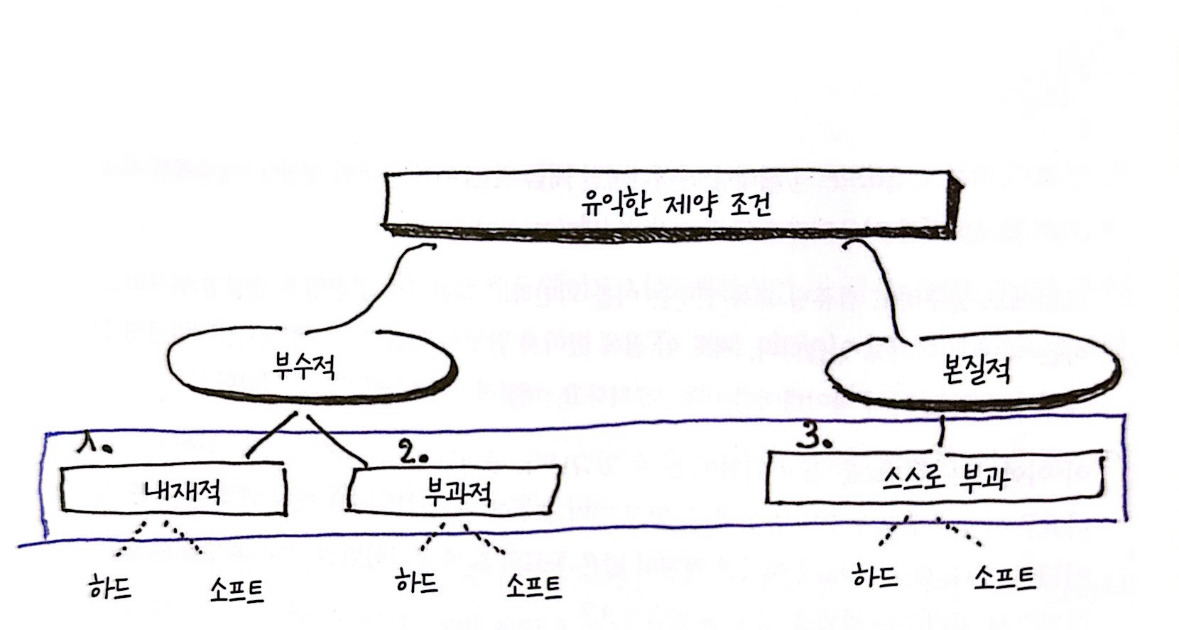 유익한 제약 조건
부수적
본질적
1.
2.
3.
내재적
부과적
스스로 부과
하드
소프트
하드
소프트
하드
소프트